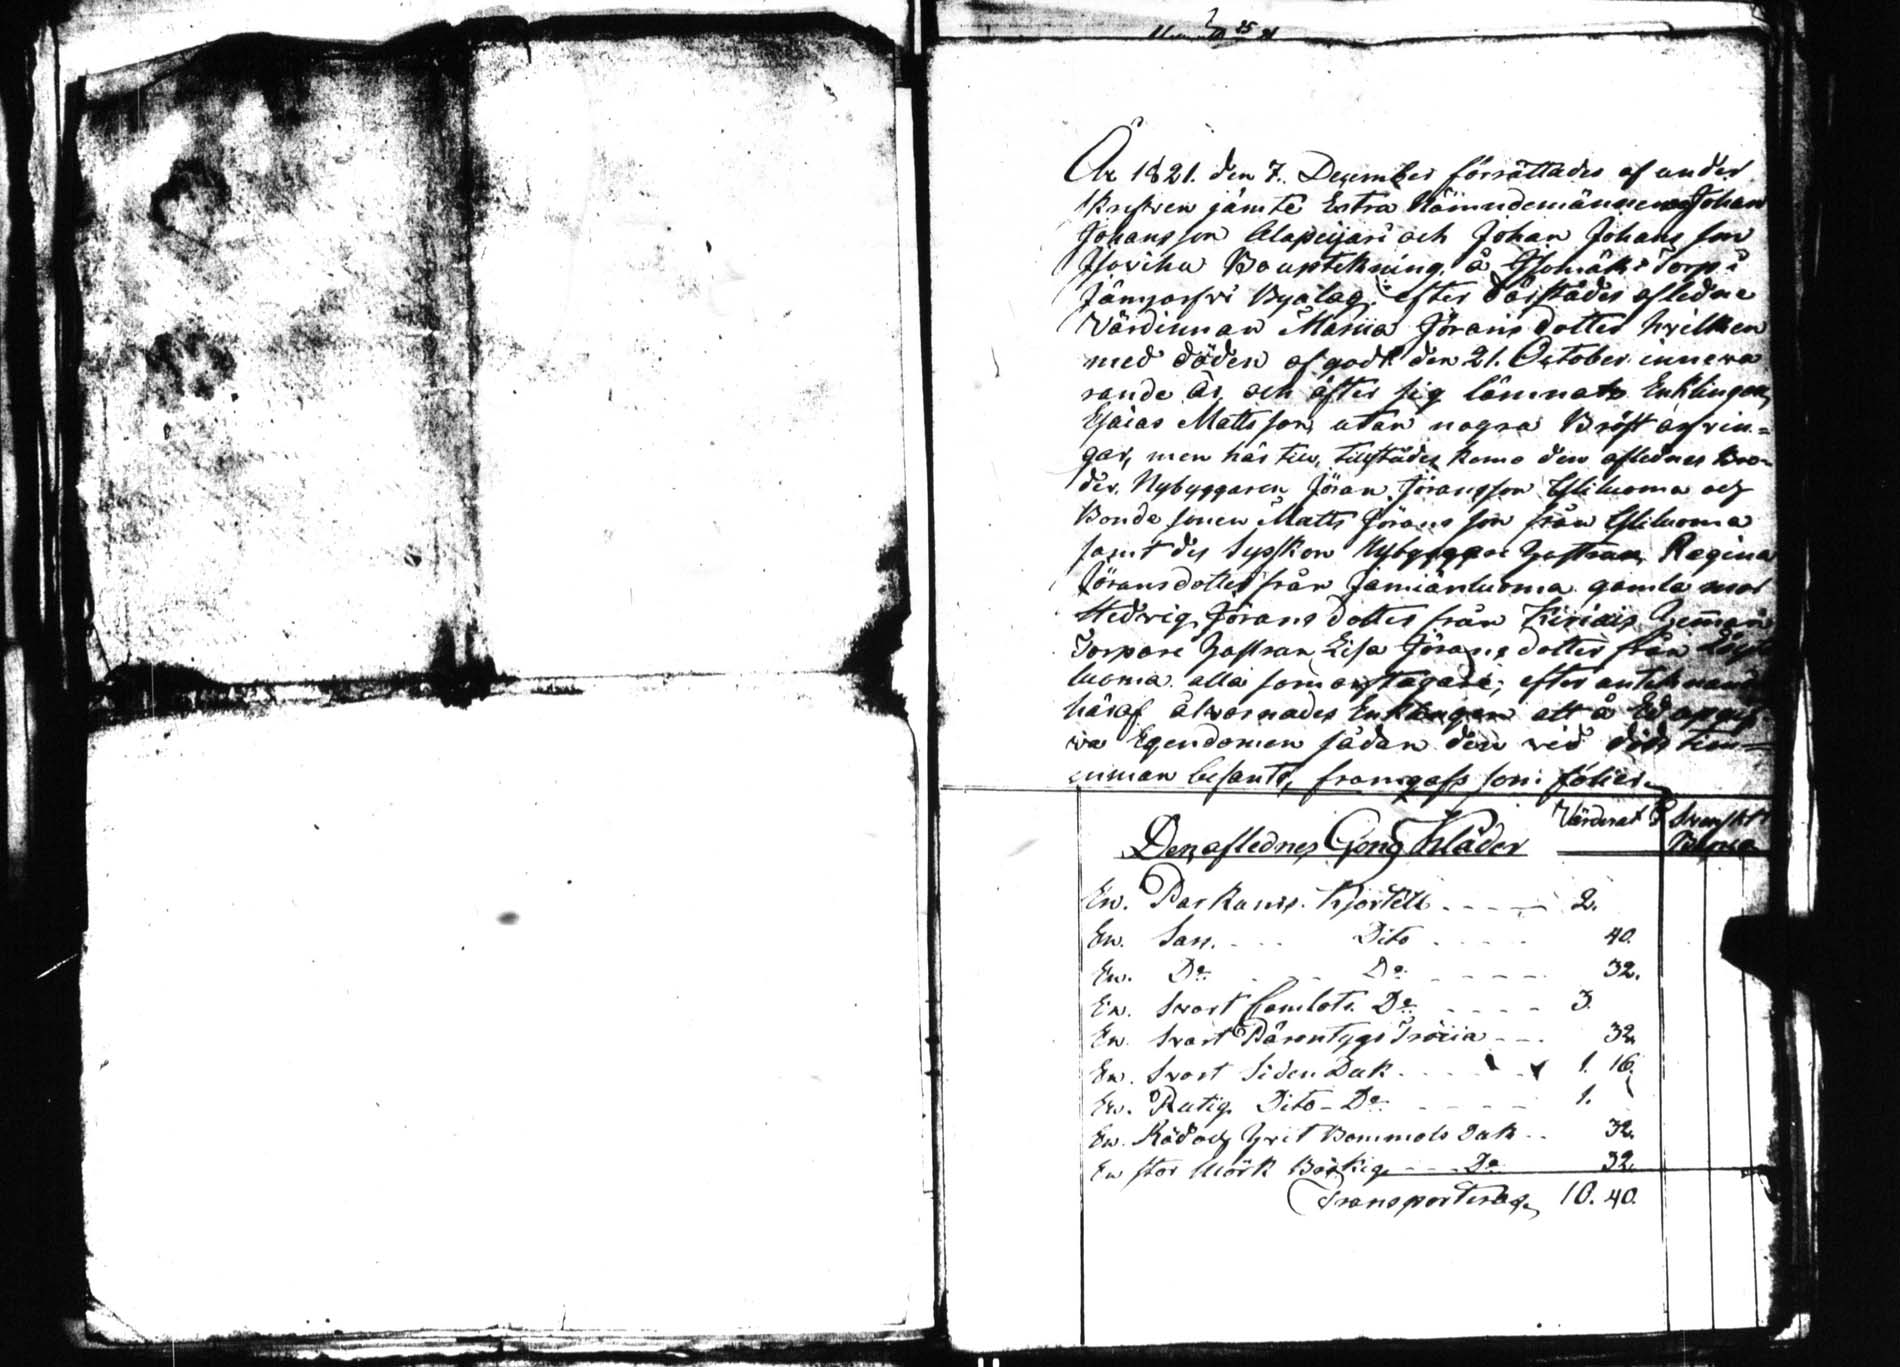 År 1821. den 7. December förrättades af under
skrefven jämte Extra Nämndemännen Johan
Johansson Alapeijari och Johan Johansson
Isoviha Bouptekning, å Isomäki Torp i
Jämijärfvi Byalag, efter därstädes afledne
Värdinnan Maria Jöransdotter hvilken
med döden afgodt den 21. October inneva
rande år, och äfter sig lämnat Enklingen
Esaias Mattsson, utan nogra Bröst arfvin=
gar, men här till, tillstädes komo den aflednes Bro-
der, Nybyggaren Jöran Jöransson Yliluoma och
Bonde sonen Matts Jöransson från Yliluoma
samt des Syskon Nybyggare hustrun Regina
Jöransdotter från Jämiänluoma gamla mor
Hedvig Jöransdotter från
Torpare hustrun Lisa Jöransdotter från
luoma alla som arftagare; efter
häraf alvornades Enklingen att å Ed uppgif
va Egendomen sådan den vid döds tim=
mman befants, framgafs som föllier
Den aflednes Gong Kläder Värderat i Svenskt
En. Parkums. Kjortell 2.
En. Sars. Dito 40.
En. Do Do 32.
En. Svart Camlots Do 3.
En. Svart Bärentygs Tröiia 32.
En. Svart Siden Duk 1. 16.
En. Rutig Dito Do 1.
En. Röd och hvit Bommols Duk 32.
En stor Mörk Do 32.
Transporteras 10. 40.